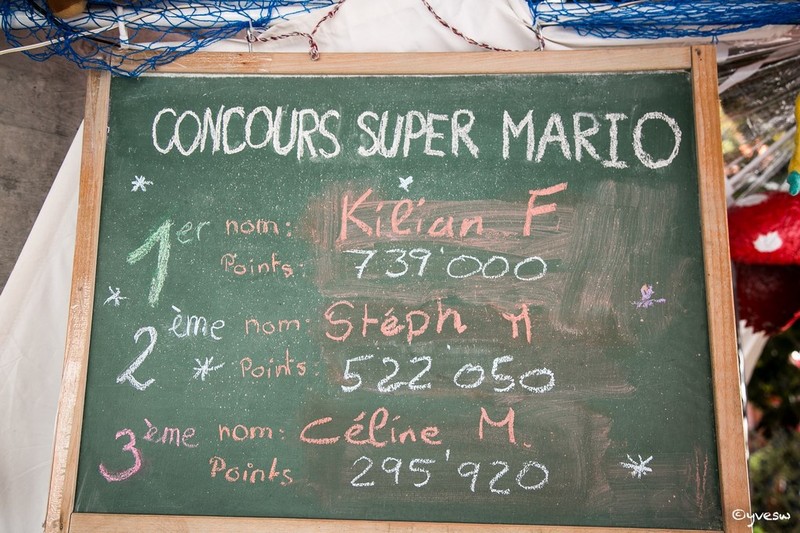 CONCOURS SUPER MARIO
1er nom: Kilian F
Points: 739'000
2ème nom: Stéph M
Points: 522'050
3ème nom: Céline M.
Points 295'920
©yvesw